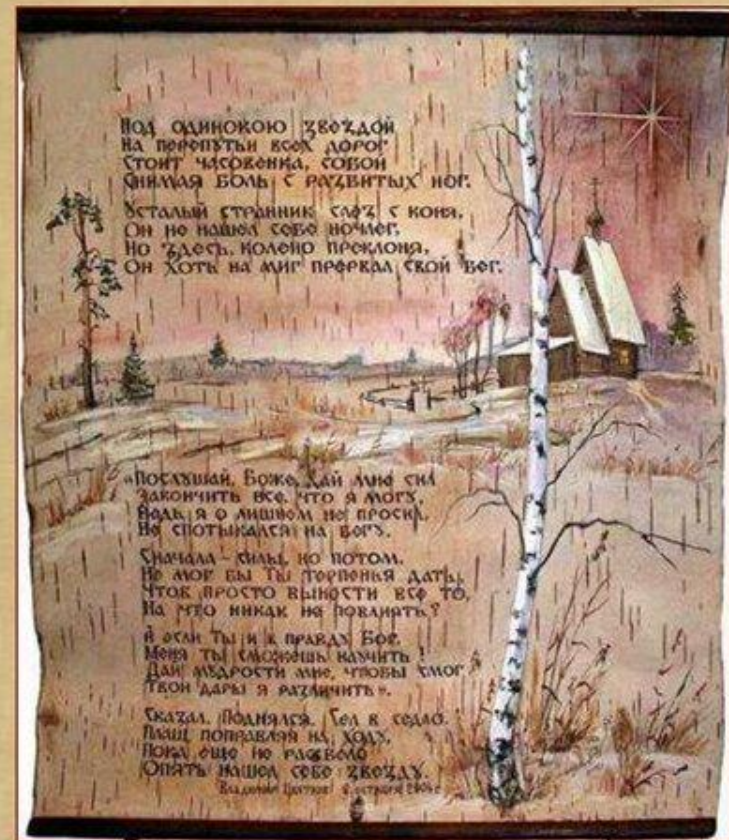 Под одинокою звездой
На перепутьи всех дорог
Стоит часовенка, собой
Снимая боль с разбитых ног.
Усталый странник слез с коня,
Он не нашел себе ночлег.
Но здесь, колено преклоня,
Он хоть на миг прервал свой бег.
«Послушай, Боже, дай мне сил
Закончить все, что я могу,
Ведь я о лишнем не просил,
Не спотыкался на бегу.
Сначала - силы, но потом,
Не мог бы Ты терпенья дать,
Чтоб просто вынести все то,
На что никак не повлиять?
И если Ты и в правду Бог,
Меня Ты сможешь научить!
Дай мудрости мне, чтобы смог
Твои дары я различить».
Сказал. Поднялся. Сел в седло.
Плащ поправляя на ходу,
Пока еще не рассвело
Опять нашел себе звезду.
Владимир Цветков 2004г